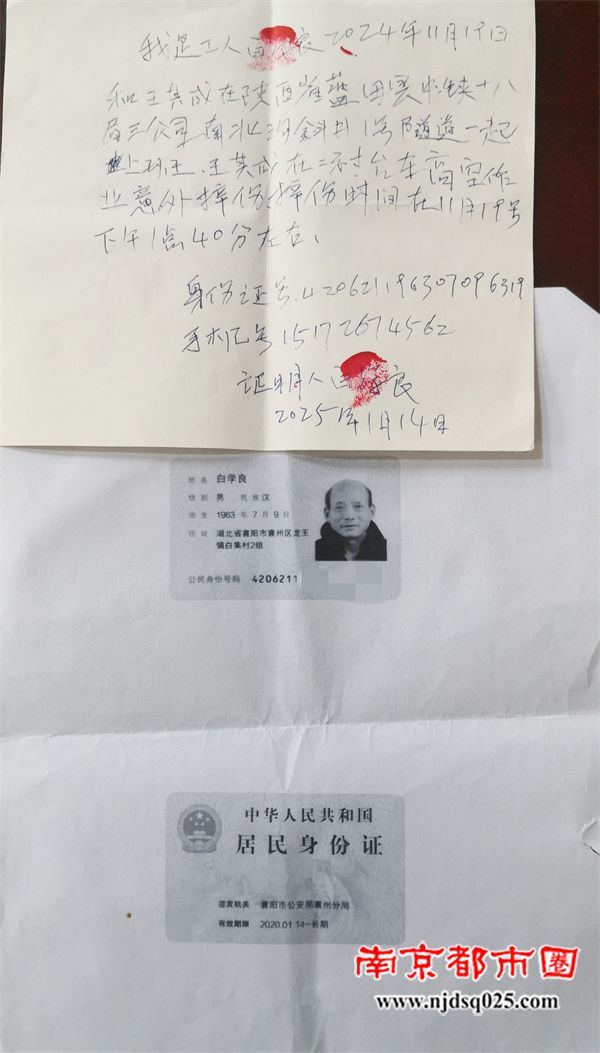 我是工人白学良2024年11月19日
和王其成在陕西省蓝田县中铁十八
局三公司南北沟斜井1号隧道一起
上班。王其成在二衬台车高空作
业意外摔伤摔伤时间在11月19号
下午1点40分左右、
身份证号.420621196307096319
手机号15172674562
证明人白学良
2025年1月14日
姓名 白学良
性别 男 民族 汉
出生 1963 年 7 月 9 日
住址 湖北省襄阳市襄州区龙王
镇白集村2组
公民身份号码 4206211
中华人民共和国
居民身份证
签发机关 襄阳市公安局襄州分局
有效期限 2020.01.14-长期
南京都市圈
www.njdsq025.com